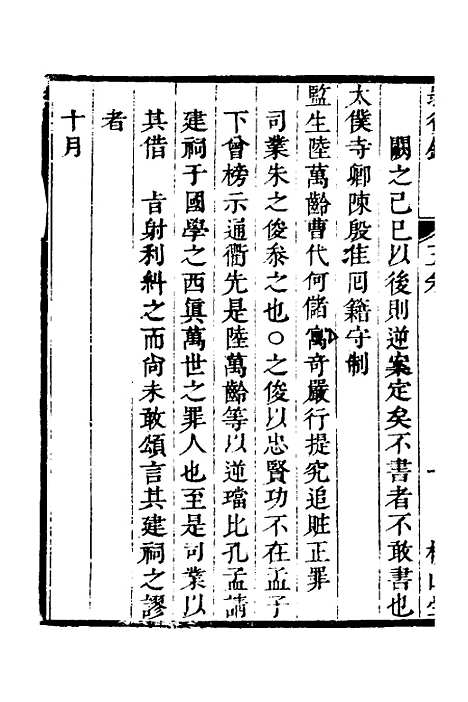 闕之己巳以後則逆案定矣不書者不敢書也
太僕寺卿陳殷准囘籍守制
監生陸萬齡曹代何儲寓奇嚴行提究追賍正罪
司業朱之俊叅之也○之俊以忠賢功不在孟子
下曾榜示通衢先是陸萬齡等以逆璫比孔孟請
建祠于國學之西眞萬世之罪人也至是司業以
其借　㫖射利糾之而尙未敢頌言其建祠之謬
者
十月